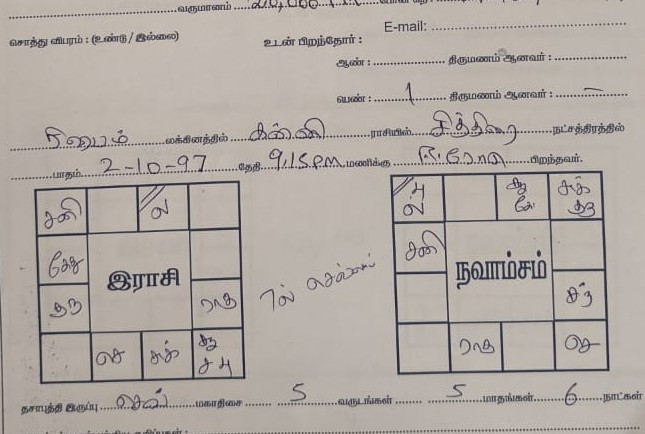 வருமானம் ..... 20,000
சொத்து விபரம் : (உண்டு / இல்லை)
உடன் பிறந்தோர் : E-mail:
ஆண் : ..... திருமணம் ஆனவர் :
பெண் : 1 திருமணம் ஆனவர் : –
ரிஷபம் லக்கினத்தில் கன்னி ராசியில் சித்திரை நட்சத்திரத்தில்
பாதம் 2-10-97 தேதி 9.15 PM மணிக்கு பிறந்தவர்.
சனி ல
கேது
குரு ராகு
செ சுக் சூ ச பு
இராசி
7ல் செவ்வாய்
பு ல சூ கே சுக் குரு
சனி
சந்
ராகு செ
நவாம்சம்
தசாபுத்தி இருப்பு செவ் மகாதிசை 5 வருடங்கள் 5 மாதங்கள் 6 நாட்கள்